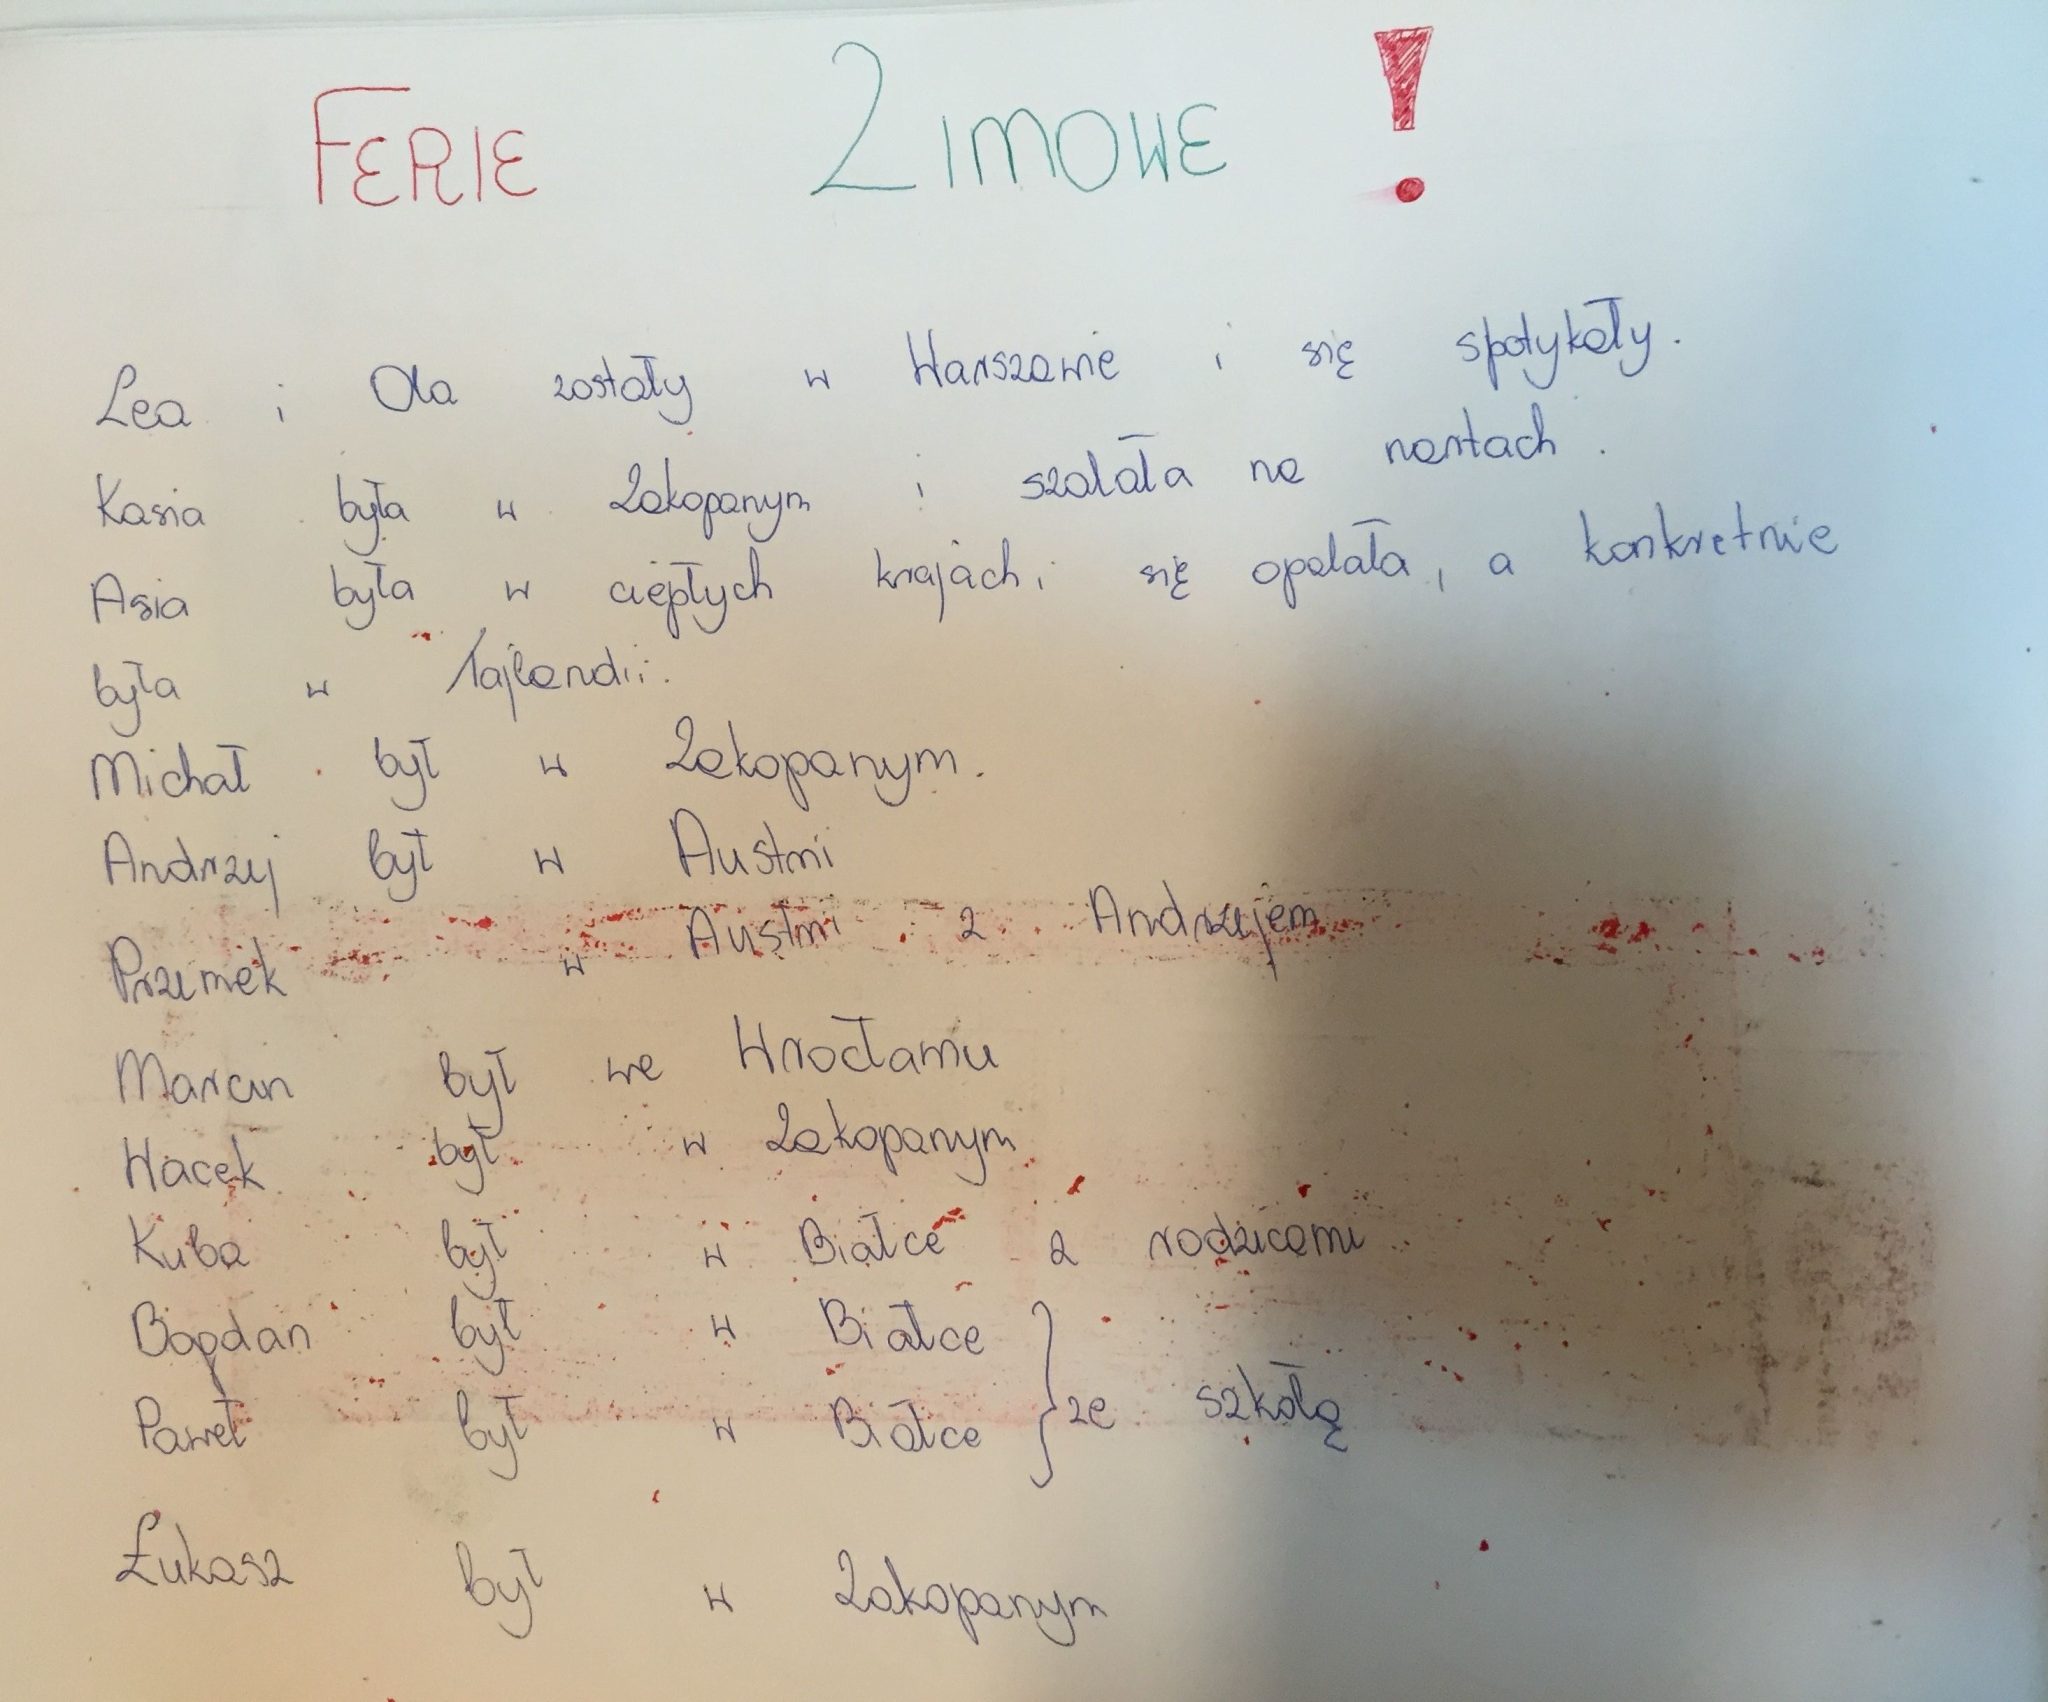 FERIE ZIMOWE !
Lea i Ola zostały w Warszawie i się spotykały.
Kasia była w Zakopanym i szalała na nartach.
Asia była w ciepłych krajach, się opalała, a konkretnie
była w Tajlandii.
Michał był w Zakopanym.
Andrzej był w Austrii
Przemek w Austrii z Andrzejem
Marcin był we Wrocławiu
Wacek był w Zakopanym
Kuba był w Białce z rodzicami
Bogdan był w Białce
Paweł był w Białce } ze szkołą
Łukasz był w Zakopanym